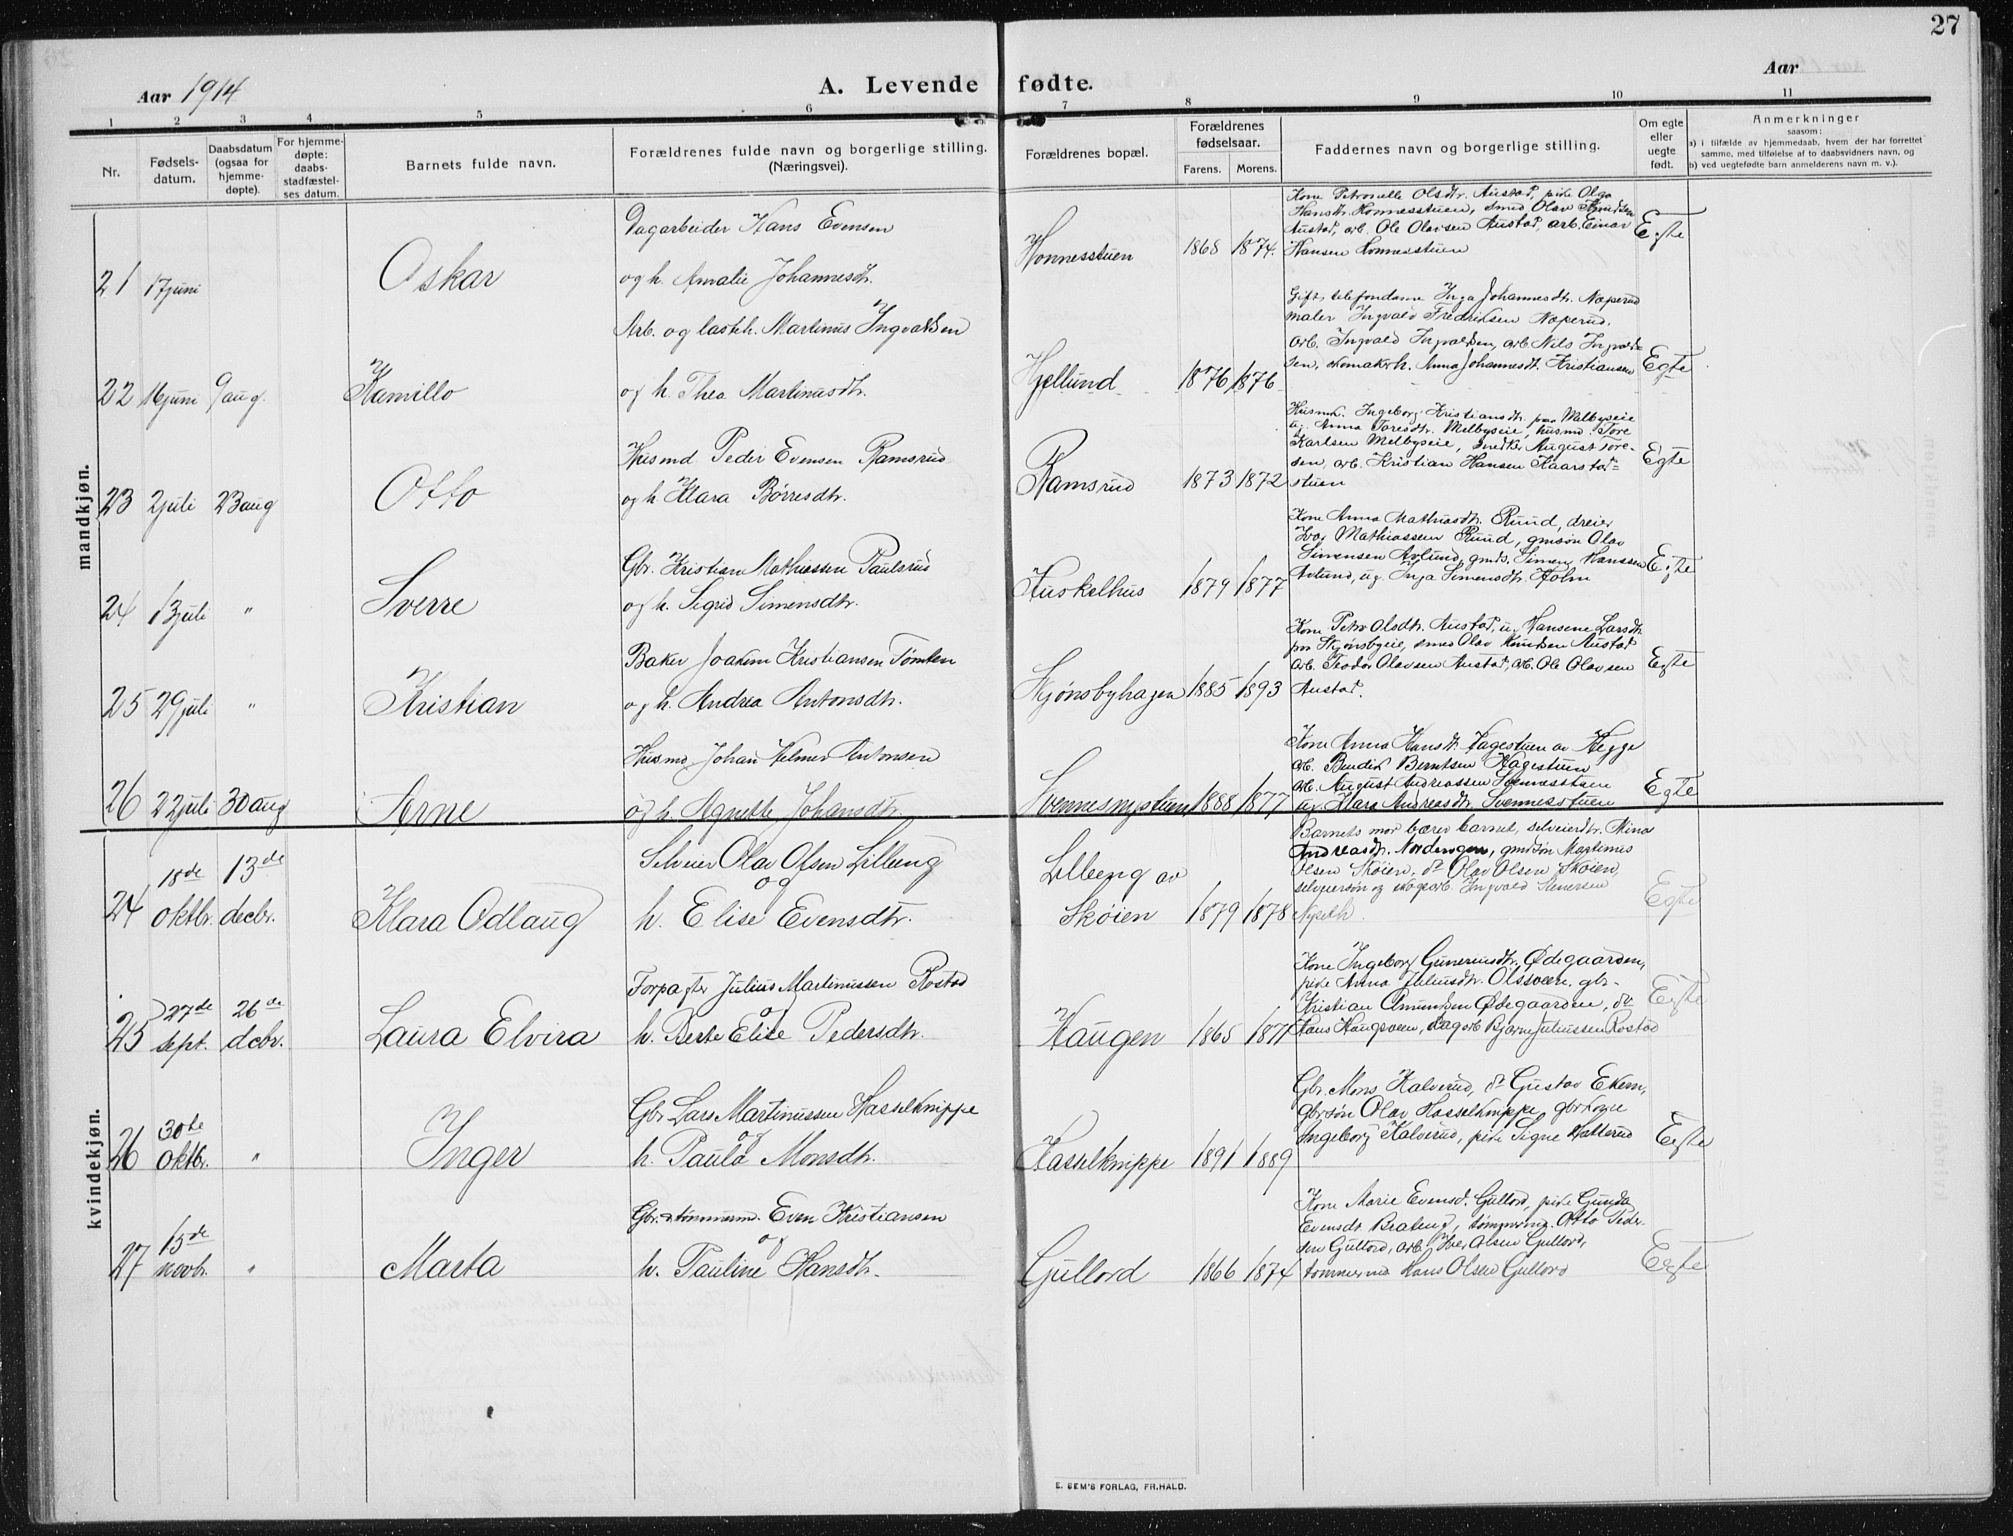 27
Aar 1914
A. Levende fødte.
Aar
1 2 3 4 5 6 7 8 9 10 11
Nr.
Fødsels-
datum.
Daabsdatum
(ogsaa for
hjemme-
døpte).
For hjemme-
døpte:
daabs-
stadfæstel-
ses datum.
Barnets fulde navn.
Forældrenes fulde navn og borgerlige stilling.
(Næringsvei).
Forældrenes bopæl.
Forældrenes
fødselsaar.
Farens. Morens.
Faddernes navn og borgerlige stilling.
Om egte
eller
uegte
født.
Anmerkninger
saasom:
a) i tilfælde av hjemmedaab, hvem der har forrettet
samme, med tilføielse af to daabsvidners navn, og
b) ved uegtefødte barn anmelderens navn m. v.).
mandkjøn.
21 17 juni
Oskar
Dagarbeider Hans Evensen
og h. Amalie Johannesdtr.
Honnesstuen 1868 1874.
Kone Petronelle Olsdtr. Austad, pike Olga
Hansdtr. Honnesstuen, smed Olav Knudsen
Austad, arb. Ole Olavsen Austad, arb. Einar
Hansen Honnesstuen
Egte
22 16 juni 9 aug.
Kamillo
Arb. og lasteh. Martinus Ingvaldsen
og h. Thea Martinusdtr.
Hjellund 1876 1876
Gift telefondame Inga Johannesdtr. Næperud
maler Ingvald Fredriksen Næperud.
arb. Ingvald Ingvaldsen, arb Nils Ingvald-
sen, skomakerh. Anna Johannesdt. Kristiansen
Egte
23 2 juli 23 aug
Otto
Husmd Peder Evensen Ramsrud
og h Klara Børresdtr.
Ramsrud 1873 1872
Husmk. Ingeborg Kristiansdtr. paa Melbyseie
ug. Anna Toresdtr. Melbyseie, husmd. Tore
Karlsen Melbyseie, snedker August Tore-
sen, arb. Kristian Hansen Kaarstad-
stuen
Egte
24 13 juli "
Sverre
Gbr. Kristian Mathiassen Paulsrud
og h. Sigrid Simensdtr.
Kuskelhus 1879 1877
Kone Anna Mathiasdtr. Rund, dreier
Ivar Mathiassen Rund, gmsøn Olav
Simensen Avlund, gmds. Simen Hanssen
Avlund, ug. Inga Simensdtr. Holm
Egte
25 29 juli "
Kristian
Baker Joakim Kristiansen Tømten
og h. Andrea Antonsdtr.
Skjønsbyhagen 1885 1893
Kone Petra Olsdtr. Austad, u. Hansene Larsdtr.
paa Skjønsbyeie, smed Olav Knudsen Austad
arb. Teodor Olavsen Austad, arb. Ole Olavsen
Austad.
Egte
26 22 juli 30 aug
Arne
Husmd Johan Helmer Antonsen
og h. Agnette Johansdtr.
Svennesnystuen 1888 1877
Kone Anna Hansdt. Hagestuen av Hegge
arb. Bendik Berntsen Hagestuen
arb. August Andreassen Svennesstuen
ug. Klara Andreasdtr. Svennesstuen
Egte
kvindekjøn.
24 18de oktbr. 13de decbr.
Klara Odlaug
Selveier Olav Olsen Lilleng
og
h. Elise Evensdtr.
Lilleng av
Skøien 1879 1878
Barnets mor bærer barnet, selveierdtr. Mina
Andreasdtr. Nordengen, gmdsøn Martinus
Olsen Skøien, do Olav Olsen Skøien,
selveiersøn og skogsarb. Ingvald Stenersen
Egte
25 27de sept. 26de dcbr.
Laura Elvira
Forpagter Julius Martinussen Rostad
og
h. Berte Elise Pedersdtr.
Haugen 1865 1871
Kone Ingeborg Gunerusdtr. Ødegaarden,
pike Anna Juliusdtr. Olssveen, gbr.
Kristian Amundsen Ødegaarden, do
Hans Haugsveen, dagarb Bjarne Juliussen Rostad
Egte
26 30te oktbr. "
Inger
Gbr. Lars Martinussen Hasselknippe
og
h. Paula Monsdtr.
Hasselknippe 1891 1889
Gbr. Mons Kalverud, do Gustav Ekern,
gbrsøn Olav Hasselknippe, gbrkone
Ingeborg Kalverud, pike Signe Hatterud
Egte
27 15de novbr. "
Marta
Gbr. & tømmermd. Even Kristiansen
og
h. Pauline Hansdtr.
Gullord 1866 1874
Kone Marie Evensd. Gullord, pike Gunda
Evensdt Brateng, tømmermd. Otto Peder-
sen Gullord, arb. Iver Olsen Gullord,
tømmermd Hans Olsen Gullord
Egte
E. SEM'S FORLAG, FR.HALD.